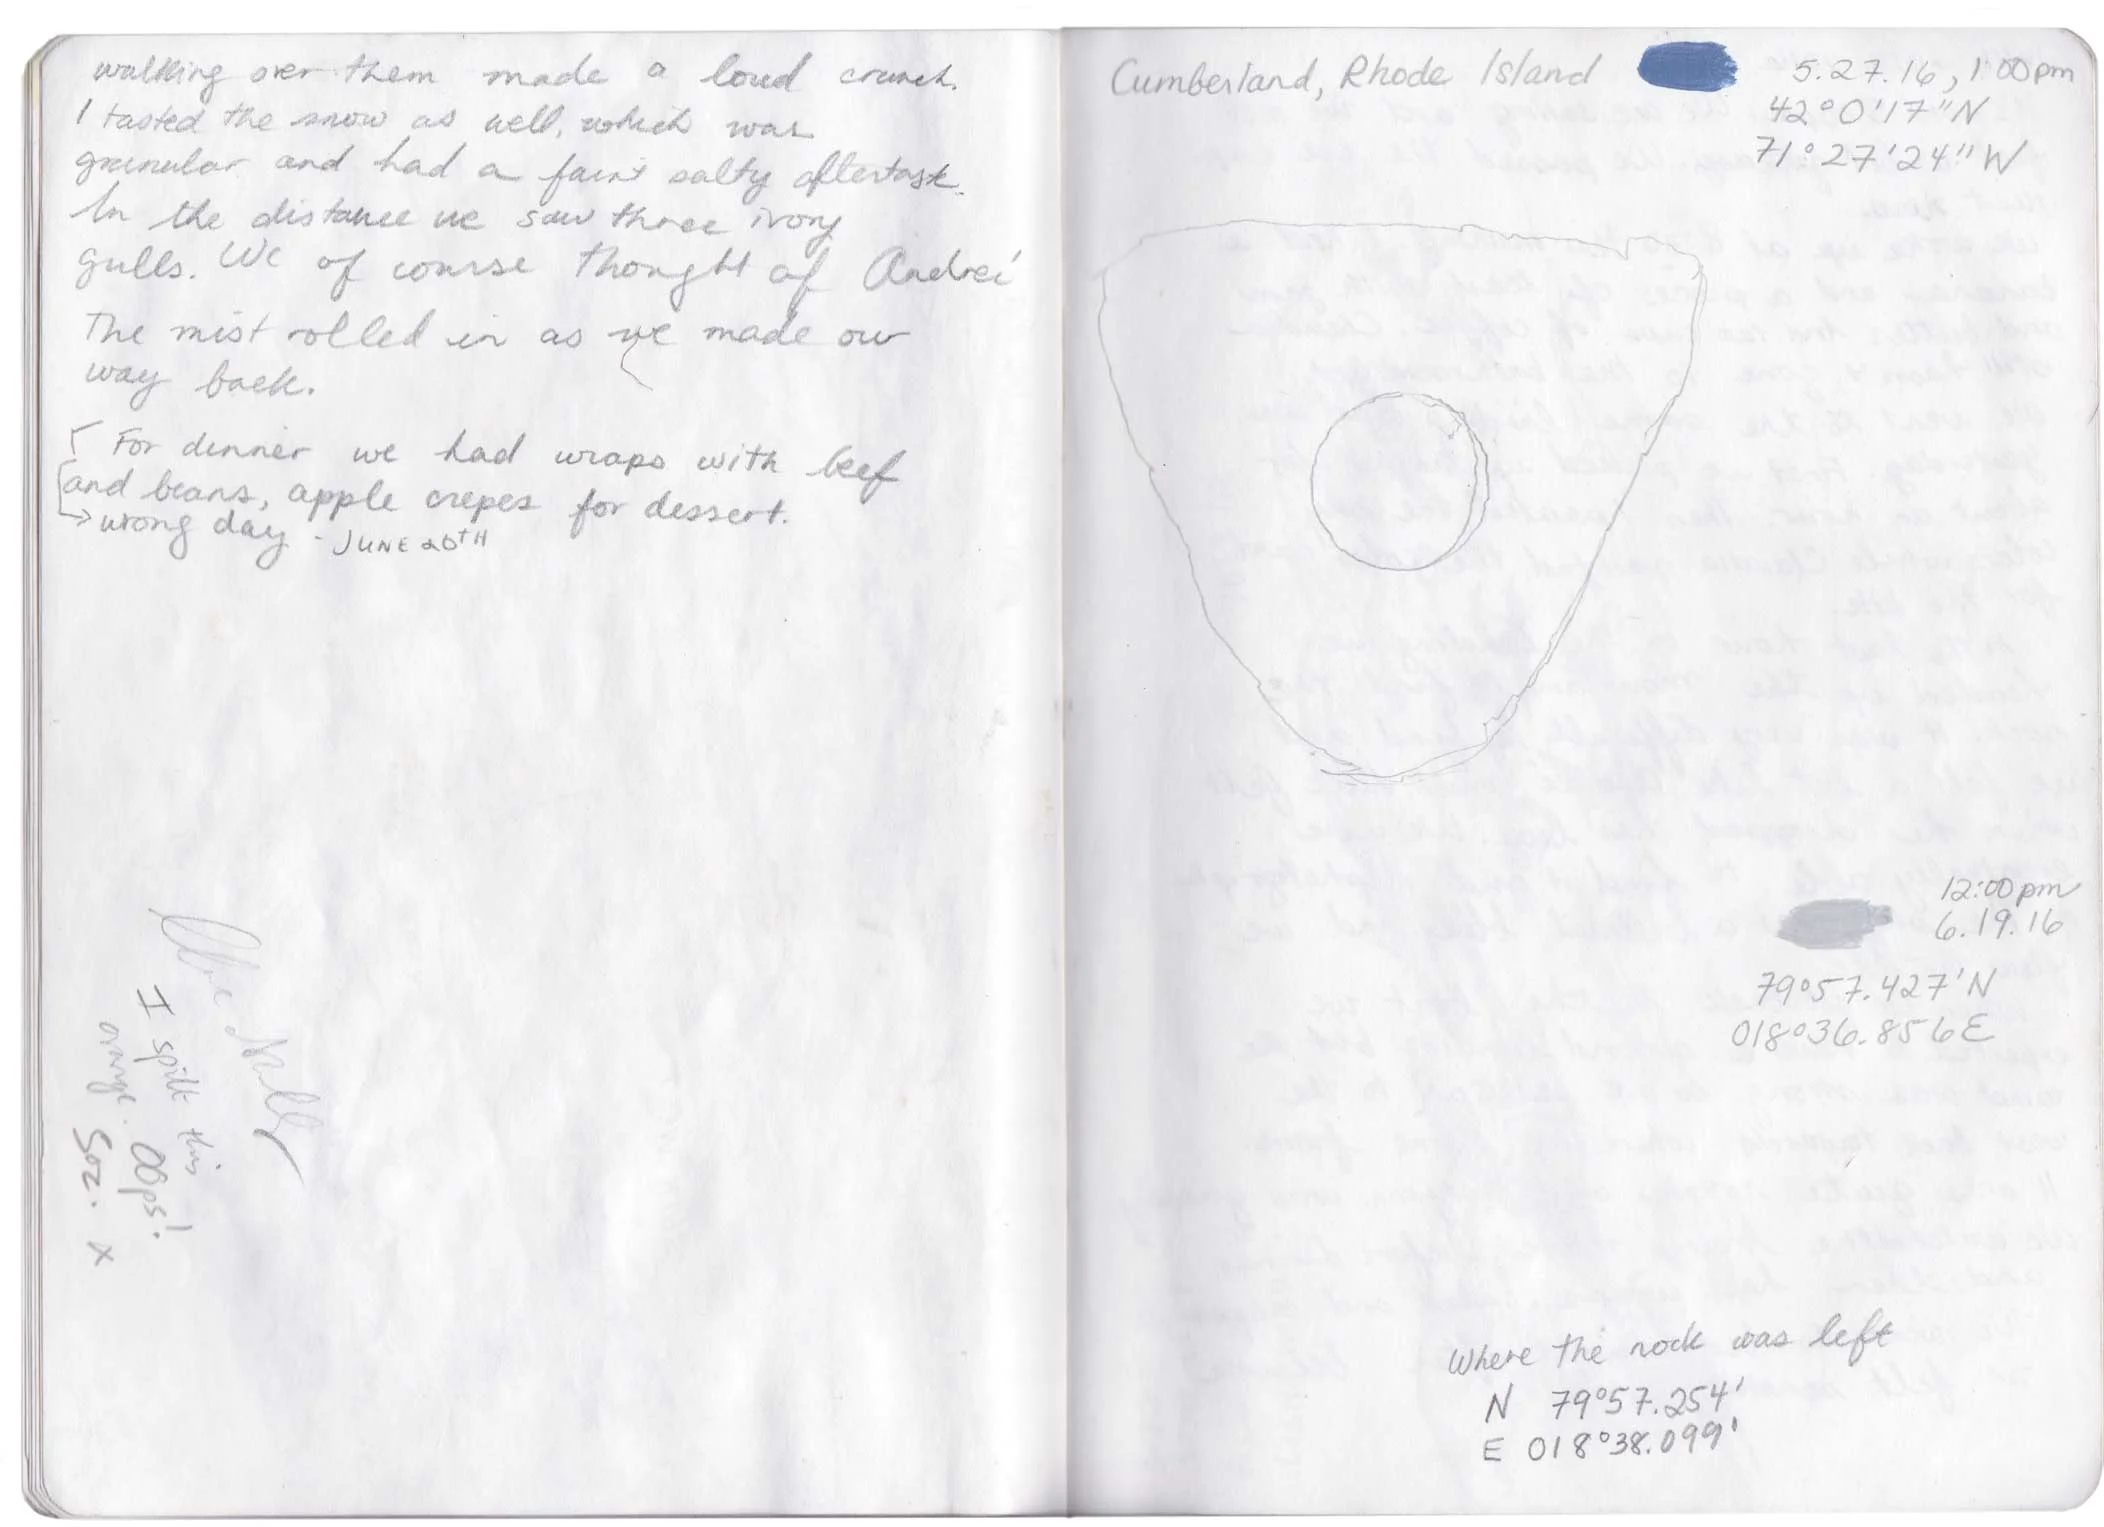 walking over them made a loud crunch.
I tasted the snow as well, which was
granular and had a faint salty aftertaste.
In the distance we saw three ivory
gulls. We of course thought of Andrei
The mist rolled in as we made our
way back.
For dinner we had wraps with beef
and beans, apple crepes for dessert.
→ wrong day - JUNE 20TH
I spilt this
orange. OOps!
Soz. x
Cumberland, Rhode Island
5.27.16, 1:00pm
42°0'17"N
71°27'24"W
12:00pm
6.19.16
79°57.427'N
018°36.856E
Where the rock was left
N 79°57.254'
E 018°38.099'